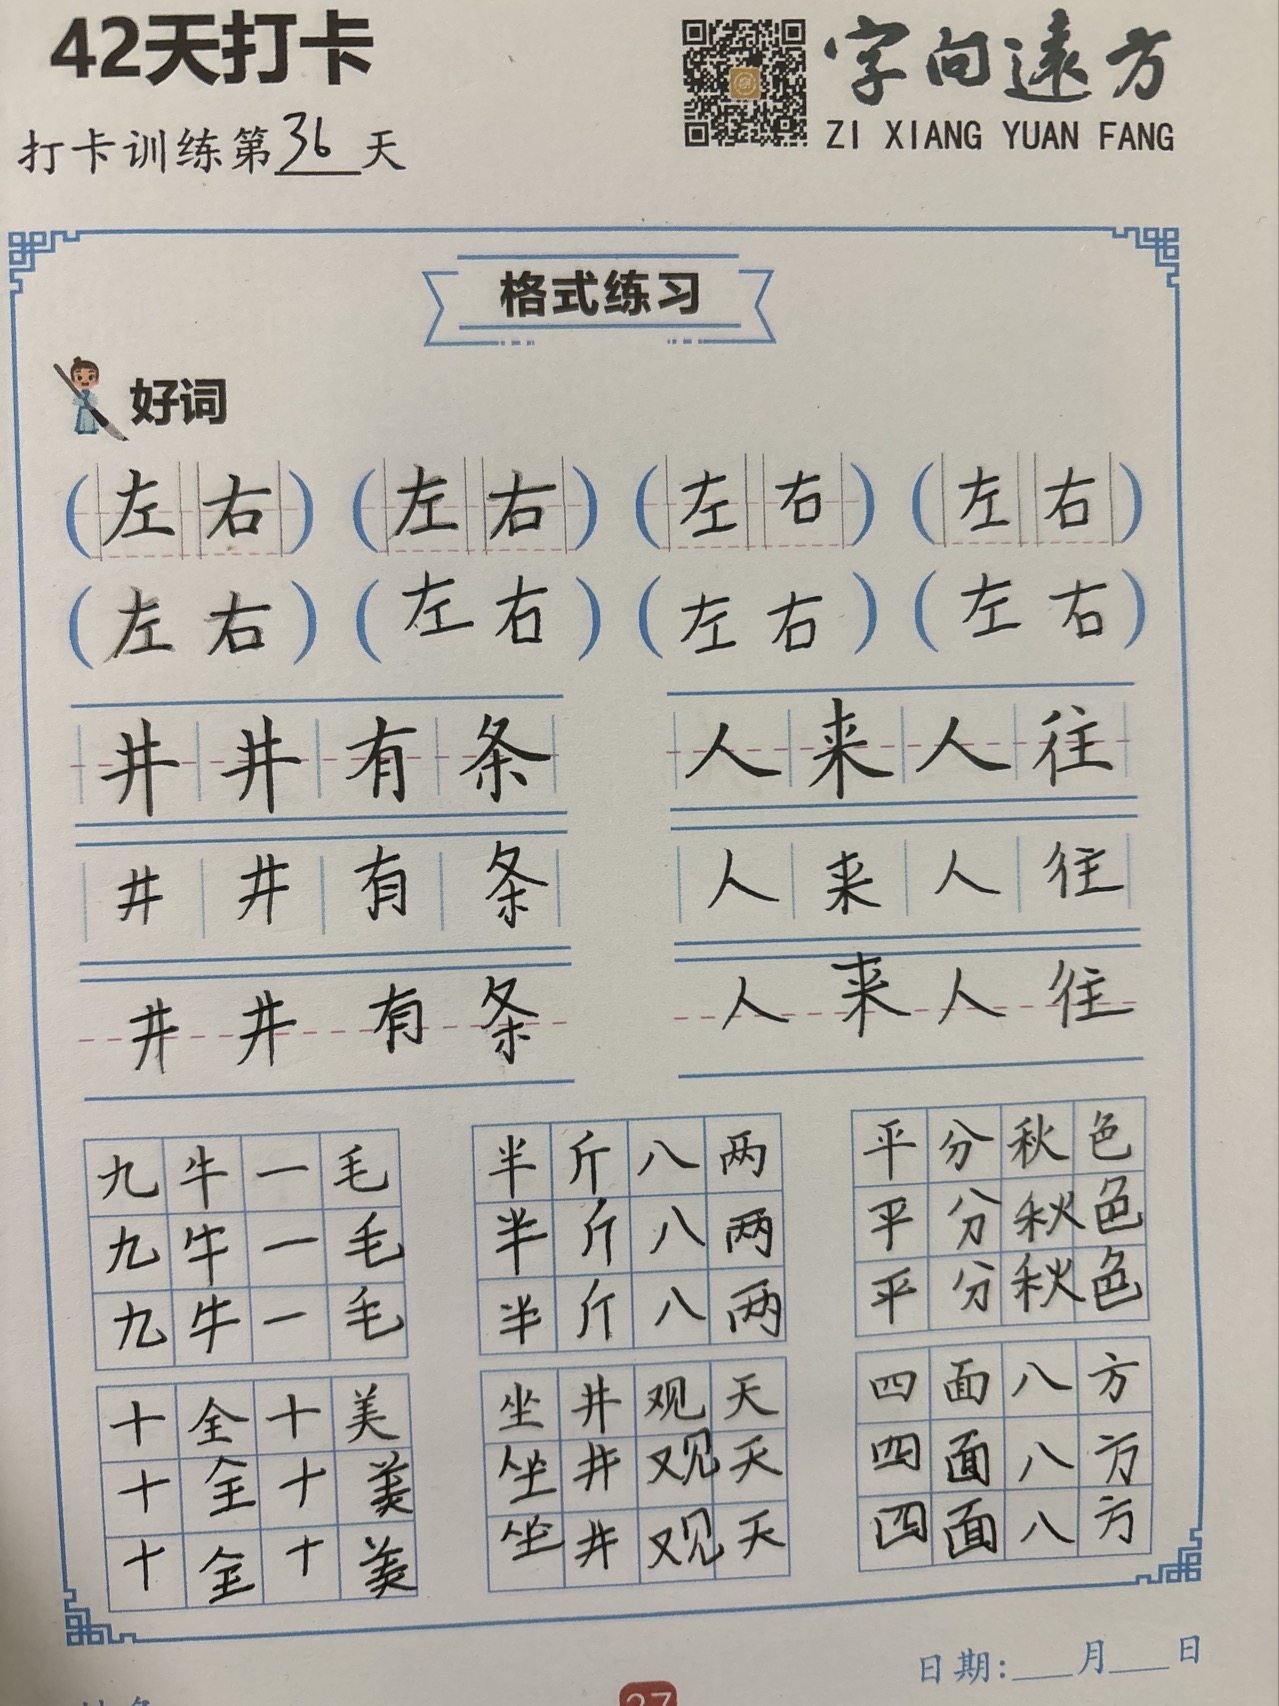 42天打卡
字向遠方
ZI XIANG YUAN FANG
打卡训练第36天
格式练习
好词
(左右) (左右) (左右) (左右)
(左右) (左右) (左右) (左右)
井井有条 人来人往
井井有条 人来人往
井井有条 人来人往
九牛一毛 半斤八两 平分秋色
九牛一毛 半斤八两 平分秋色
九牛一毛 半斤八两 平分秋色
十全十美 坐井观天 四面八方
十全十美 坐井观天 四面八方
十全十美 坐井观天 四面八方
日期:___月___日
37